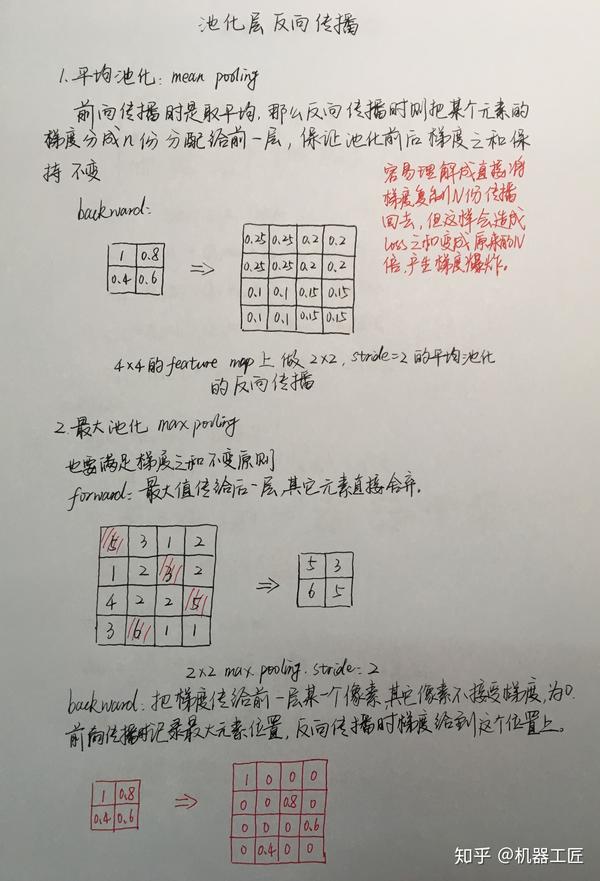 池化层反向传播
1.平均池化: mean pooling
前向传播时是取平均,那么反向传播时则把某个元素的
梯度分成n份分配给前一层,保证池化前后梯度之和保
持不变
容易理解成直接将
梯度复制N份传播
回去,但这样会造成
Loss之和变成原来的N
倍,产生梯度爆炸。
backward:
1 0.8
0.4 0.6
⇒
0.25 0.25 0.2 0.2
0.25 0.25 0.2 0.2
0.1 0.1 0.15 0.15
0.1 0.1 0.15 0.15
4×4的feature map上做2×2, stride=2的平均池化
的反向传播
2.最大池化 max pooling
也要满足梯度之和不变原则
forward: 最大值传给后一层,其它元素直接舍弃。
5 3 1 2
1 2 3 2
4 2 2 5
3 6 1 1
⇒
5 3
6 5
2×2 max pooling. stride=2
backward: 把梯度传给前一层某一个像素,其它像素不接受梯度,为0.
前向传播时记录最大元素位置,反向传播时梯度给到这个位置上。
1 0.8
0.4 0.6
⇒
1 0 0 0
0 0 0.8 0
0 0 0 0.6
0 0.4 0 0
知乎 @机器工匠